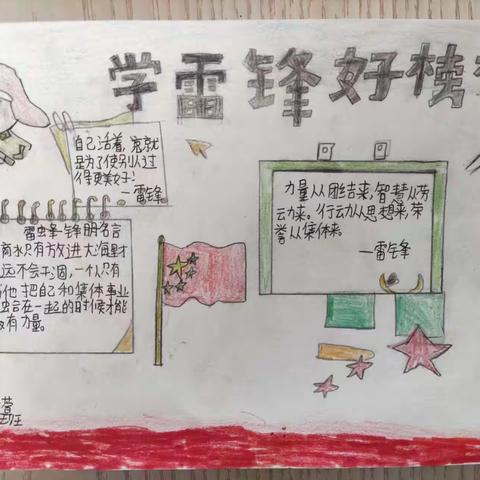 学雷锋好榜样
自己活着,就
是为了使别人过
得更美好!
—雷锋
雷锋名言
水只有放进大海里才
远不会干涸,一个人只有
他把自己和集体事业
合在一起的时候才能
有力量。
力量从团结来,智慧从劳
动来。行动从思想来,荣
誉从集体来。
—雷锋